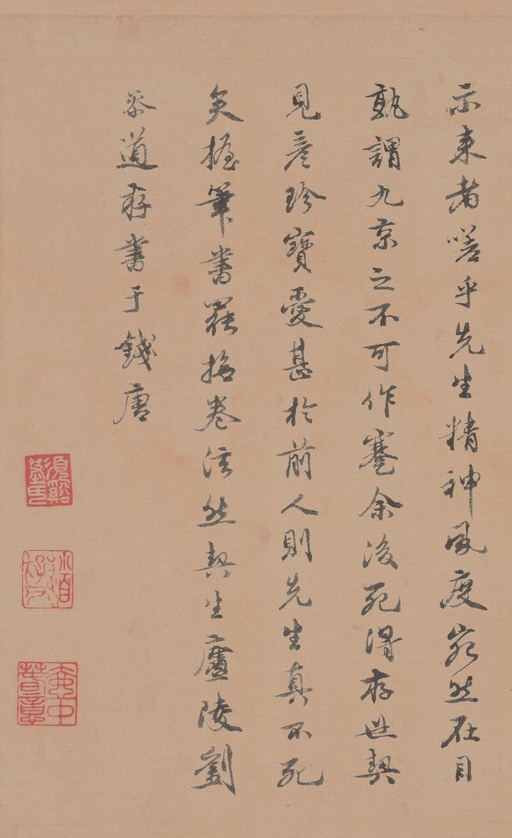 示來者嗟乎先生精神風度宛然在目
孰謂九京之不可作蹇余後死得存世契
見彥珍寶愛甚於前人則先生真不死
矣握筆書罷掩卷泫然契生廬陵劉
恭道存書于錢唐
須谿劉氏